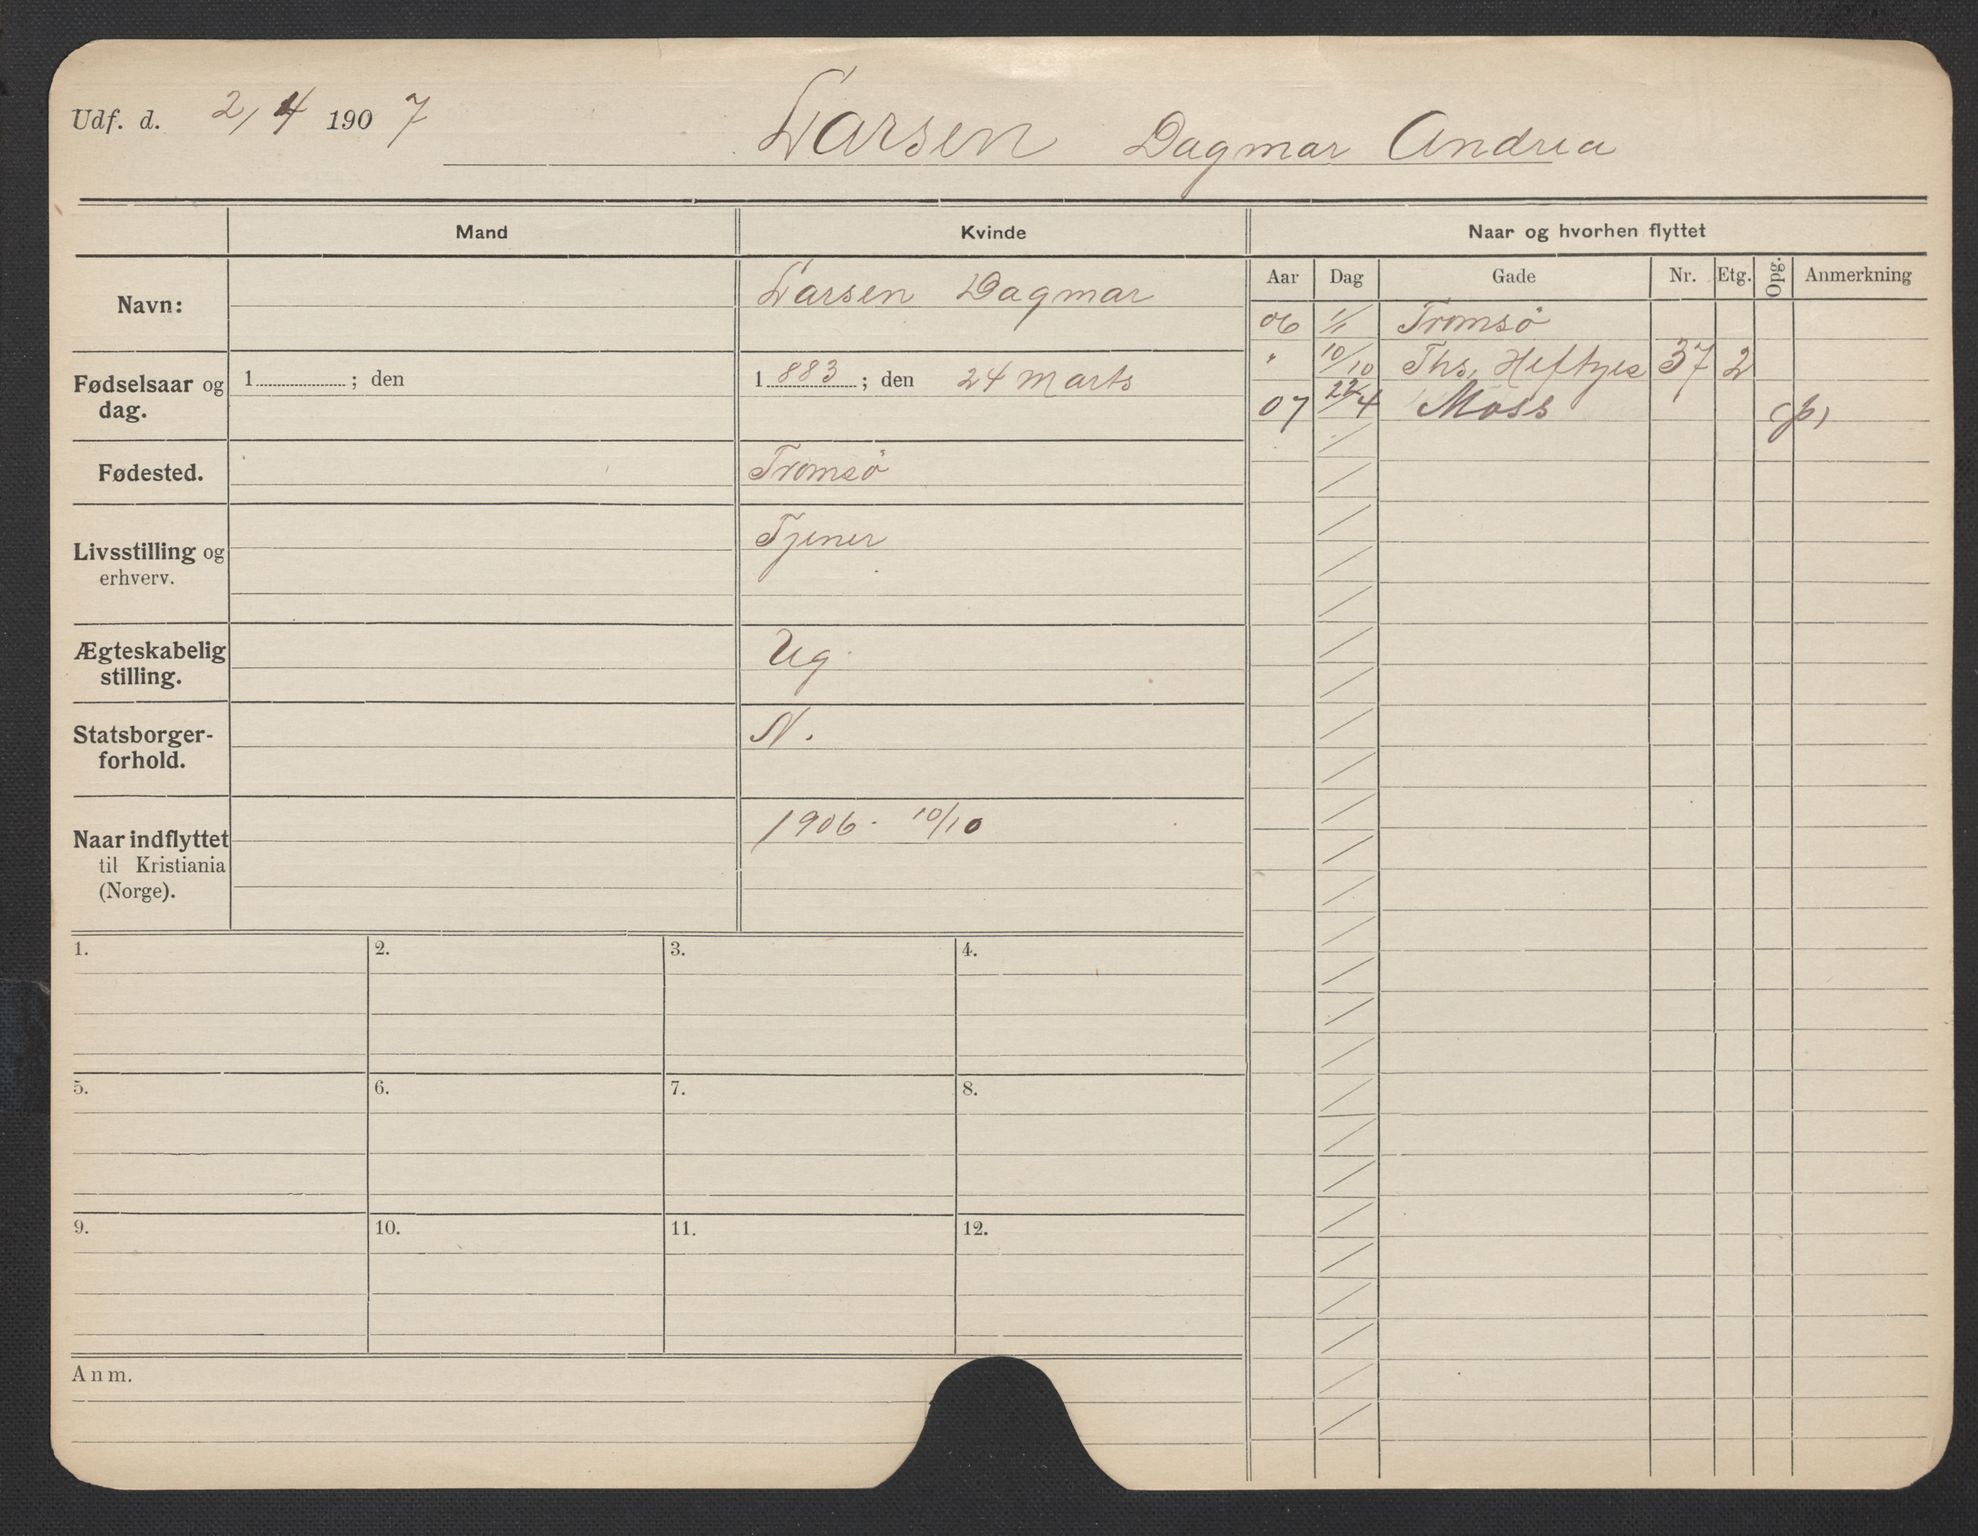 Udf. d. 2/4 1907 Larsen Dagmar Andrea
Mand Kvinde Naar og hvorhen flyttet
Aar Dag Gade Nr. Etg. Opg. Anmerkning
Navn: Larsen Dagmar
06 1/1 Tromsö
" 10/10 Ths. Heftyes 37 2
07 22/4 Moss (p)
Fødselsaar og 1 ; den 1883 ; den 24 Marts
dag.
Fødested. Tromsö
Livsstilling og Tjener
erhverv.
Ægteskabelig Ug
stilling.
Statsborger- N.
forhold.
Naar indflyttet 1906. 10/10
til Kristiania
(Norge).
1. 2. 3. 4.
5. 6. 7. 8.
9. 10. 11. 12.
Anm.